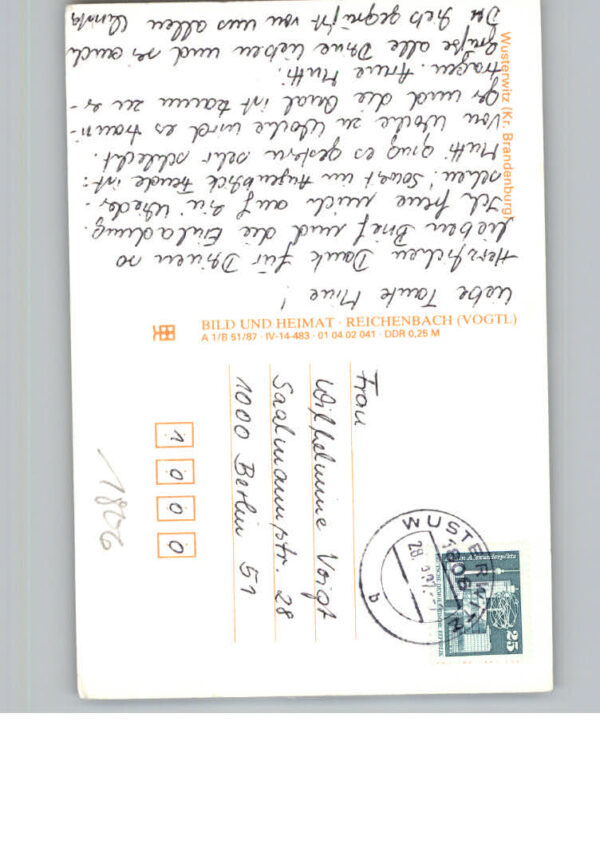 Wusterwitz (Kr. Brandenburg)
Liebe Tante Mine!
Herzlichen Dank für Deinen so
lieben Brief und die Einladung.
Ich freue mich auf ein Wieder-
sehen! Sowst im Augenblick Freude ist:
Mutti ging es gestern sehr schlecht.
Von Woche zu Woche wird es trauri-
ger und die Qual ist kaum zu er-
tragen. Arme Mutti.
Grüße alle Deine Lieben und sei auch
Du lieb gegrüßt von uns allen Christa
BILD UND HEIMAT · REICHENBACH (VOGTL)
A 1/B 51/87 · IV-14-483 · 01 04 02 041 · DDR 0,25 M
Frau
Wilhelmine Voigt
Saalmannstr. 28
1000 Berlin 51
1 0 0 0
WUSTERWITZ
1806
28.
b
25
18206